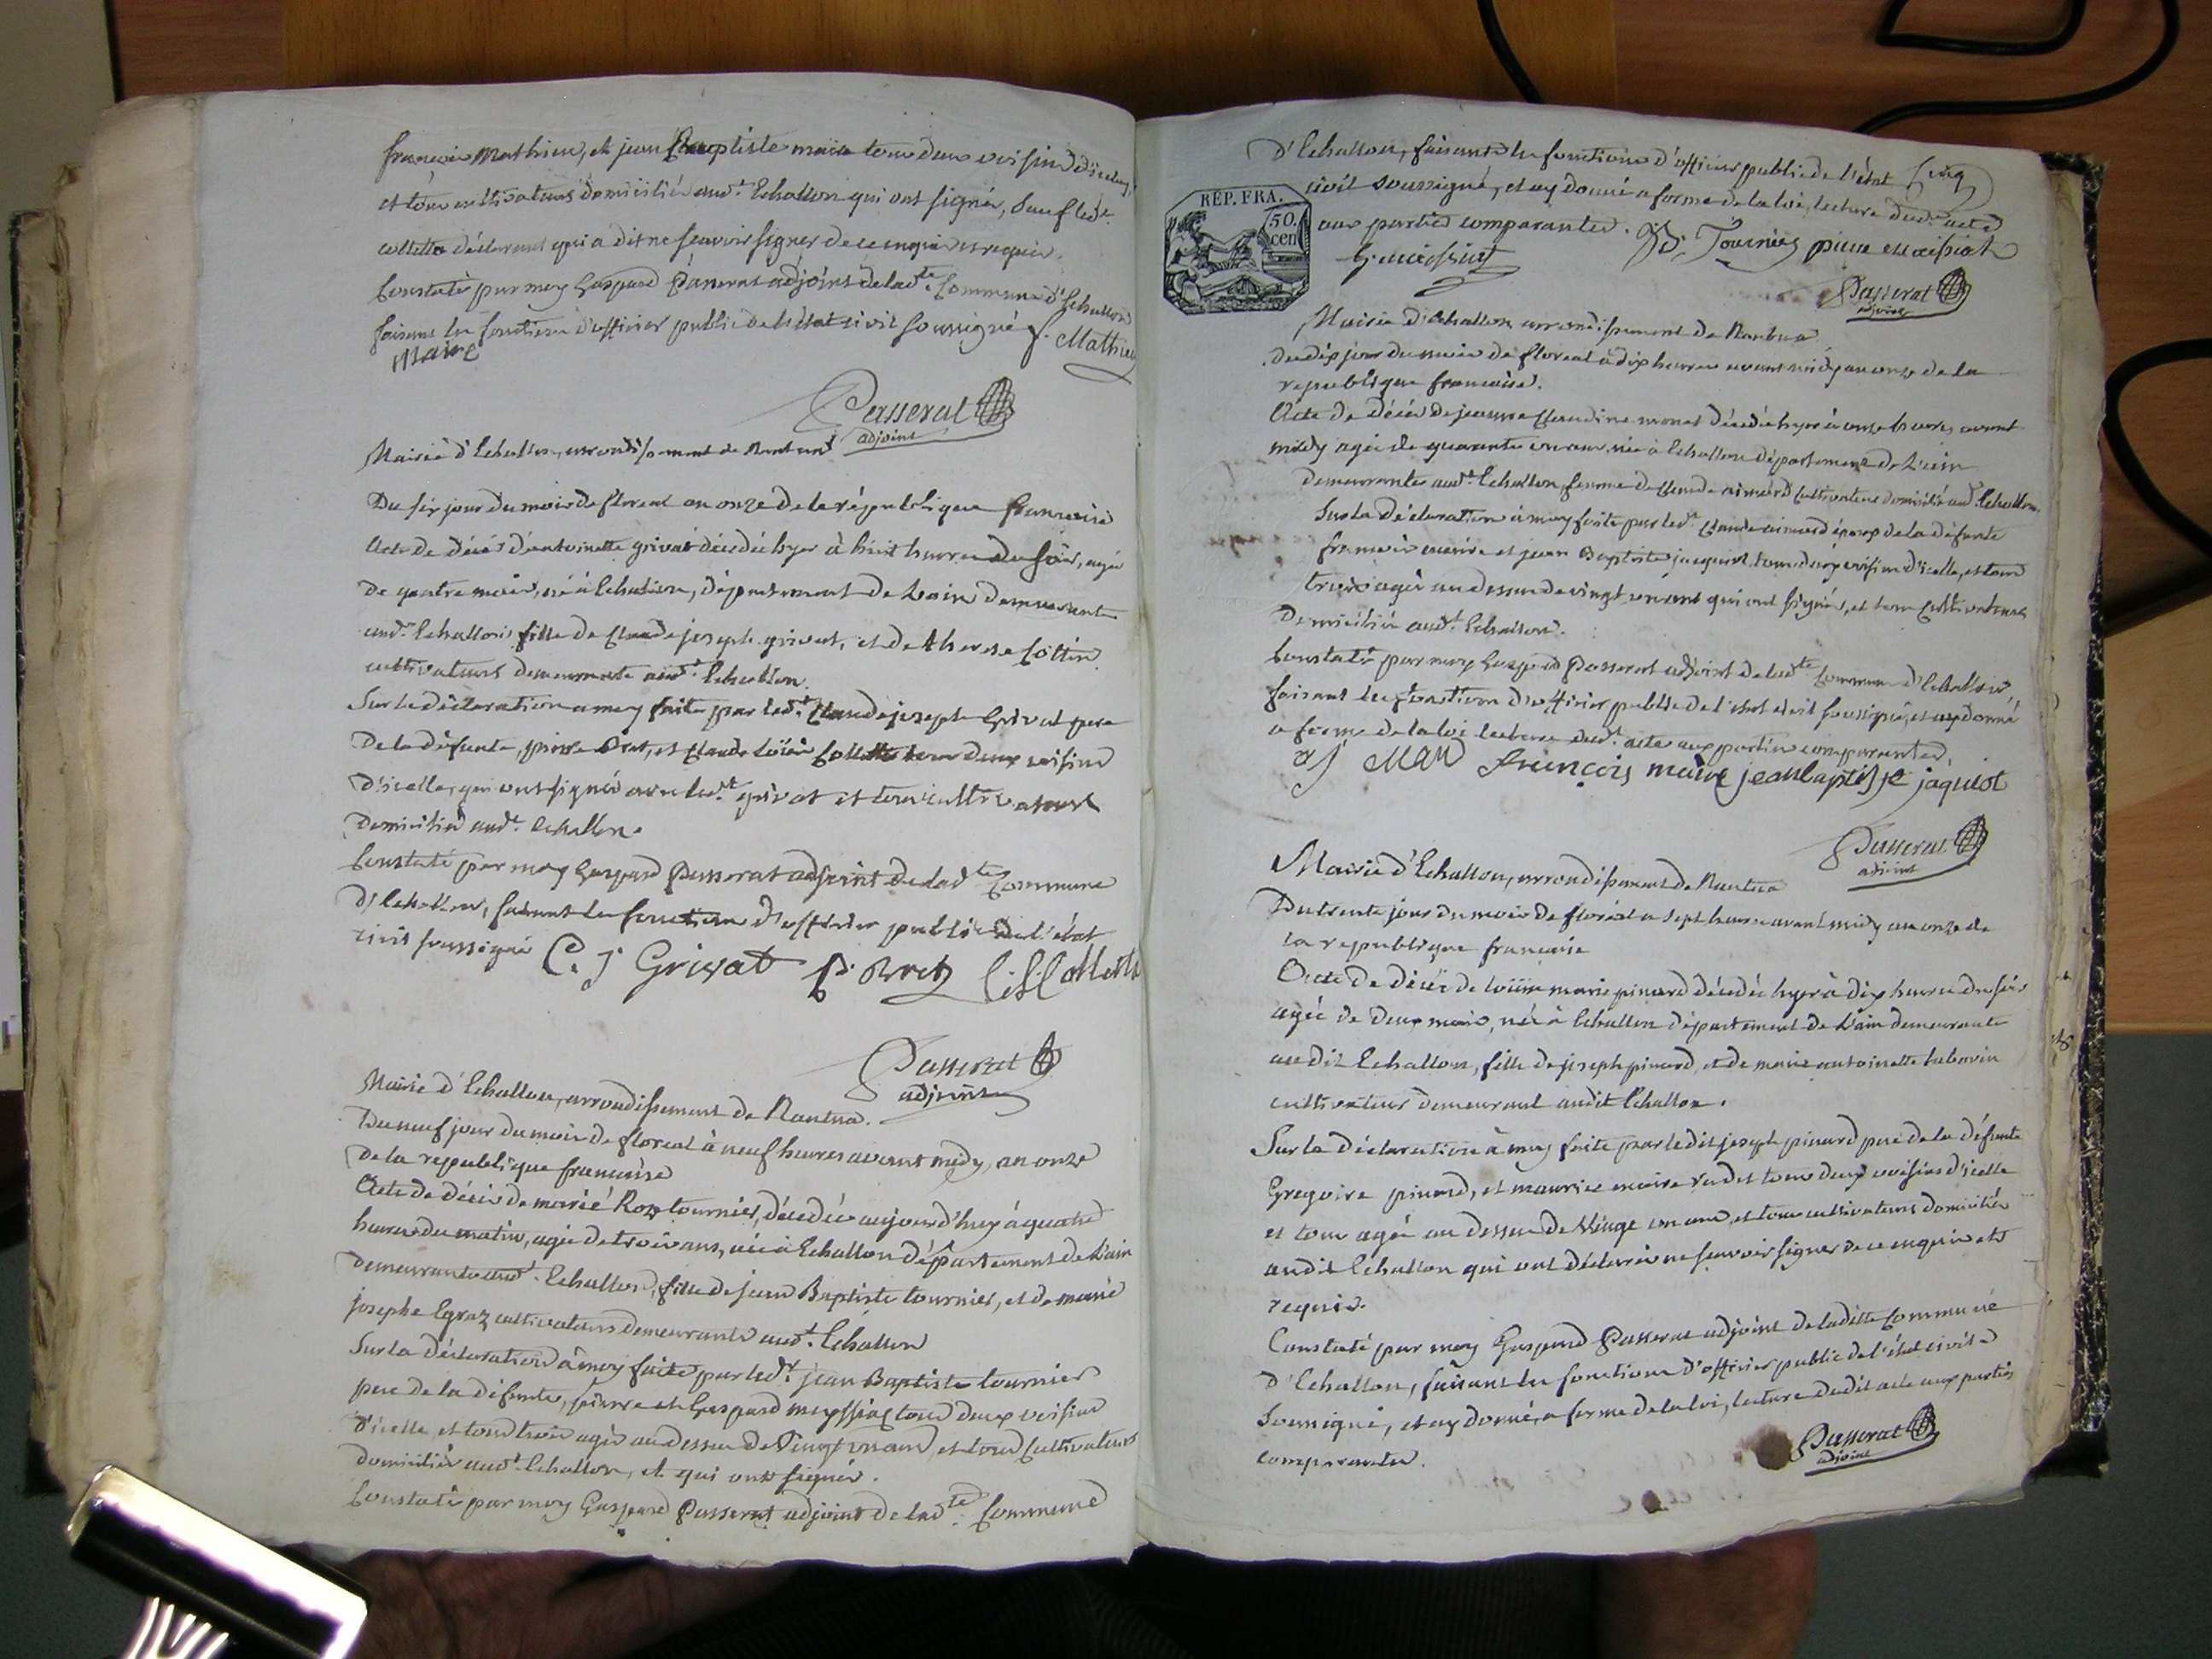 françois Mathieu, et jean Baptiste maire tous deux voisins d'iceluy
et tous cultivateurs domiciliés aud.t Echallon qui ont signés, sauf led.t
collette déclarant qui a dit ne scavoir signer de ce enquis et requis.
Constaté par moy Gaspard Passerat adjoint de lad.te Commune d'Echallon
faisant les fonctions d'officier public de l'état civil soussigné f. Mathieu
Maire
Passerat
adjoint
Mairie d'Echallon, arrondissement de Nantua
Du six jour du mois de floreal an onze de la république francaise
Acte de décés d'antoinette grivat décedée hyer à huit heures du soir, agée
de quatre mois, née à Echallon, département de L'ain demeurante
aud.t Echallon fille de Claude joseph grivat, et de therese Cottin
cultivateurs demeurants aud.t Echallon.
Sur la déclaration a moy faite par led.t Claude joseph Grivat pere
de la défunte, pierre Brat, et Claude Louis Collette tous deux voisins
d'icelle, qui ont signés avec led.t grivat et tous cultivateurs
domiciliés aud.t Echallon.
Constaté par moy Gaspard Passerat adjoint de lad.te Commune
d'Echallon, faisant les fonctions d'officier public de l'état
civil soussigné C. J Grivat P. Collette
Passerat
adjoint
Mairie d'Echallon, arrondissement de Nantua.
Du neuf jour du mois de floreal à neuf heures avant midy, an onze
de la republique francaise
Acte de décés de marie Roze tournier, décedée aujourd'huy à quatre
heures du matin, agée de trois ans, née à Echallon département de L'ain
demeurante aud.t Echallon, fille de jean Baptiste tournier, et de marie
josephe Egraz cultivateurs demeurants aud.t Echallon
Sur la déclaration à moy faite par led.t jean Baptiste tournier
pere de la défunte, pierre et Gaspard meyssiat tous deux voisins
d'icelle et tous trois agés au dessus de Vingt un ans, et tous Cultivateurs
domiciliés aud.t Echallon, et qui ont signés.
Constaté par moy Gaspard Passerat adjoint de lad.te Commune
d'Echallon, faisant les fonctions d'officier public de l'état Cinq
civil soussigné, et ay donné a forme de la loi, lecture dud.t acte
aux parties comparantes. JB. Tournier pierre meissiat
G. meissiat
RÉP. FRA.
50.
cen
Passerat
adjoint
Mairie d'Echallon arrondissement de Nantua
du dix jour du mois de floreal à dix heures avant midy an onze de la
republique francaise.
Acte de décés de jeanne Claudine monet décedée hyer à onze heures avant
midy agée de quarante un ans, née à Echallon département de L'ain
demeurante aud.t Echallon, femme de Claude aimard Cultivateur domicilié aud.t Echallon.
Sur la déclaration à moy faite par led.t Claude aimard époux de la défunte
francois maire et jean Baptiste jacquiot, tous deux voisins d'icelle, et tous
trois agés au dessus de vingt un ans qui ont signés, et tous cultivateurs
domiciliés aud.t Echallon.
Constaté par moy Gaspard Passerat adjoint de lad.te Commune d'Echallon
faisant les fonctions d'officier public de l'etat civil soussigné, et ay donné
a forme de la loi lecture dud.t acte aux parties comparantes,
françois maire jean baptiste jaquiot
Passerat
adjoint
Mairie d'Echallon, arrondissement de Nantua
Du trente jour du mois de floréal a sept heures avant midy an onze de
la republique francaise
Acte de décés de Louise marie pinard décedée hyer à dix heures du soir
agée de deux mois, née à Echallon département de L'ain demeurante
audit Echallon, fille de joseph pinard, et de marie antoinette tabouin
cultivateurs demeurant audit Echallon.
Sur la déclaration à moy faite par ledit joseph pinard pere de la défunte
Gregoire pinard, et maurice maire tous deux voisins d'icelle
et tous agés au dessus de Vingt un ans, et tous cultivateurs domiciliés
audit Echallon qui ont déclarés ne scavoir signer de ce enquis et
requis.
Constaté par moy Gaspard Passerat adjoint de ladite Commune
d'Echallon, faisant les fonctions d'officier public de l'état civil
soussigné, et ay donné, a forme de la loi, lecture dudit acte aux parties
comparantes.
Passerat
adjoint